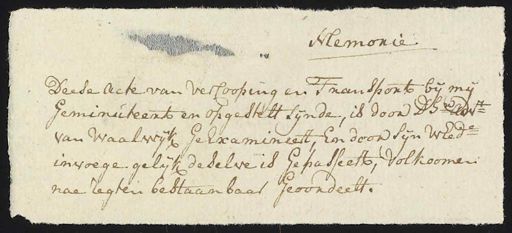 Memorie
Deese Acte van verkooping en Transport bij mij
Geminuteert en opgestelt sijnde, is door D'Hr
van Waalwijk Geexamineert, En door sijn WEd:e
invoege gelijk deselve is Gepasseert, Volkoomen
na regten bestaanbaar Geoordeelt.